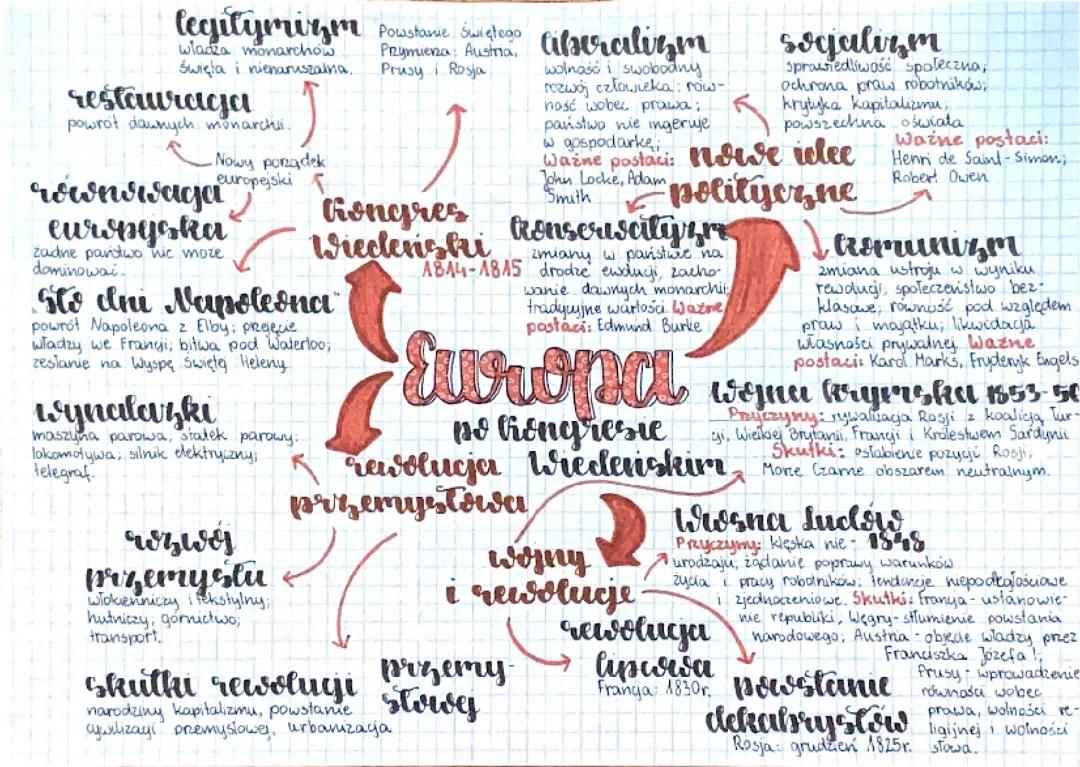 legitymizm
władza monarchów
święta i nienaruszalna.
Powstanie Świętego
Przymierza: Austria,
Prusy i Rosja
restauracja
powrót dawnych monarchii.
Nowy porządek
europejski
równowaga
europejska
żadne państwo nie może
dominować.
Kongres
Wiedeński
1814-1815
"Sto dni Napoleona"
powrót Napoleona z Elby; przejęcie
władzy we Francji; bitwa pod Waterloo;
zesłanie na Wyspę Świętej Heleny
liberalizm
wolność i swobodny
rozwój człowieka; rów-
ność wobec prawa;
państwo nie ingeruje
w gospodarkę;
Ważne postaci:
John Locke, Adam
Smith
socjalizm
sprawiedliwość społeczna;
ochrona praw robotników;
krytyka kapitalizmu;
powszechna oświata
Ważne postaci:
Henri de Saint-Simon;
Robert Owen
nowe idee
polityczne
konserwatyzm
zmiany w państwie na
drodze ewolucji, zacho-
wanie dawnych monarchii;
tradycyjne wartości. Ważne
postaci: Edmund Burke
komunizm
zmiana ustroju w wyniku
rewolucji, społeczeństwo bez-
klasowe; równość pod względem
praw i majątku; likwidacja
własności prywatnej. Ważne
postaci: Karol Marks, Fryderyk Engels
Europa
po Kongresie
Wiedeńskim
wynalazki
maszyna parowa; statek parowy;
lokomotywa; silnik elektryczny;
telegraf.
rewolucja
przemysłowa
rozwój
przemysłu
włókienniczy i tekstylny;
hutniczy, górnictwo;
transport.
skutki rewolucji przemy-
słowej
narodziny kapitalizmu, powstanie
cywilizacji przemysłowej, urbanizacja
wojny
i rewolucje
wojna krymska 1853-56
Przyczyny: rywalizacja Rosji z koalicją Tur-
cji, Wielkiej Brytanii, Francji i Królestwem Sardynii
Skutki: osłabienie pozycji Rosji,
Morze Czarne obszarem neutralnym.
Wiosna Ludów
1848
Przyczyny: klęska nie-
urodzaju; żądanie poprawy warunków
życia i pracy robotników; tendencje niepodległościowe
i zjednoczeniowe. Skutki: Francja - ustanowie-
nie republiki; Węgry - stłumienie powstania
narodowego; Austria - objęcie władzy przez
Franciszka Józefa I;
Prusy - wprowadzenie
równości wobec
prawa, wolności re-
ligijnej i wolności
słowa.
rewolucja
lipcowa
Francja: 1830r.
powstanie
dekabrystów
Rosja: grudzień 1825r.